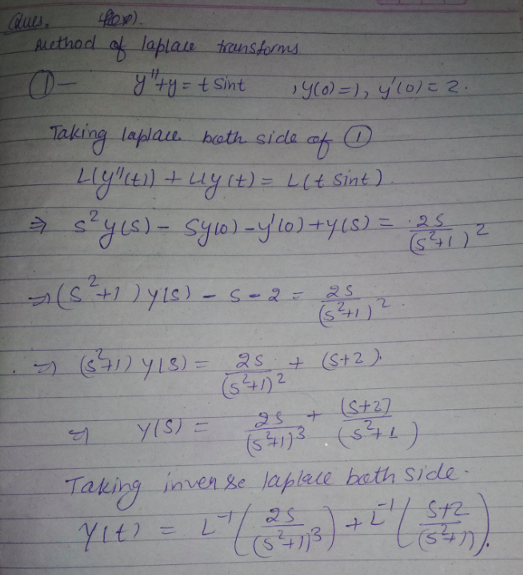 Ques.
Method of laplace transforms
① — y"+y = t sint , y(0)=1, y'(0)=2.
Taking laplace both side of ①
L(y"(t)) + L(y(t) = L(t sint).
⇒ s²y(s) - sy(0) - y'(0) + y(s) = 2s/(s²+1)²
⇒ (s²+1) y(s) - s - 2 = 2s/(s²+1)².
⇒ (s²+1) y(s) = 2s/(s²+1)² + (s+2).
⇒ y(s) = 2s/(s²+1)³ + (s+2)/(s²+1)
Taking inverse laplace both side.
y(t) = L⁻¹(2s/(s²+1)³) + L⁻¹(s+2/(s²+1)).